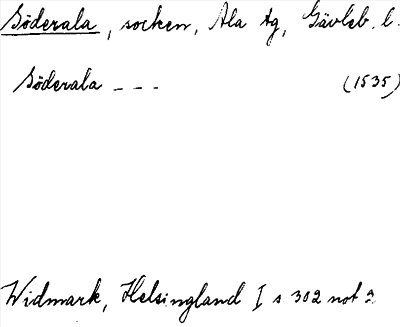 Söderala, socken, Ala tg, Gävleb. l.
Söderala - - - (1535)
Widmark, Helsingland I s 302 not 2